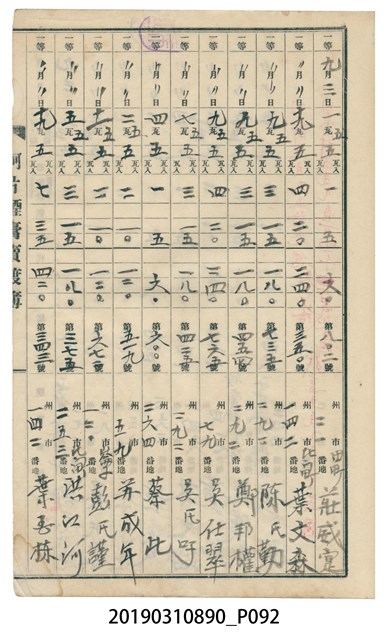 一等 九月三日 一五瓦 五瓦入 一 五 六〇 第八〇二號 州 市 二一番地 莊威
一等 〃月〃日 五瓦入 四 二〇 二四〇 第三五〇號 州 市 一四二番地 葉文森
一等 〃月〃日 九五瓦 五瓦入 三 一五 一八〇 第七三五號 州 市 二九二番地 陳氏勤
一等 〃月〃日 九五瓦 五瓦入 三 一五 一八〇 第四五四號 州 市 二九二番地 鄭邦權
一等 〃月〃日 九五瓦 五瓦入 四 二〇 二四〇 第七六五號 州 市 七九番地 吳仕翠
一等 〃月〃日 七五瓦 五瓦入 三 一五 一八〇 第四二五號 州 市 二九二番地 吳氏
一等 〃月〃日 四五瓦 五瓦入 一 五 六〇 第六〇〇號 州 市 二六四番地 蔡此
一等 〃月〃日 五瓦入 二 一〇 一二〇 第五一九號 州 市 五九番地 苏成年
一等 〃月〃日 五瓦入 二 一〇 一二〇 第六七二號 州 市 一二〇番地 彭氏謹
一等 〃月〃日 五五瓦 五瓦入 三 一五 一八〇 第三七五號 州 市 二五三番地 洪江河
一等 〃月〃日 五瓦入 七 三五 四二〇 第三四三號 州 市 一四二番地 葉玉栋
阿片煙膏賣渡簿
20190310890_P092